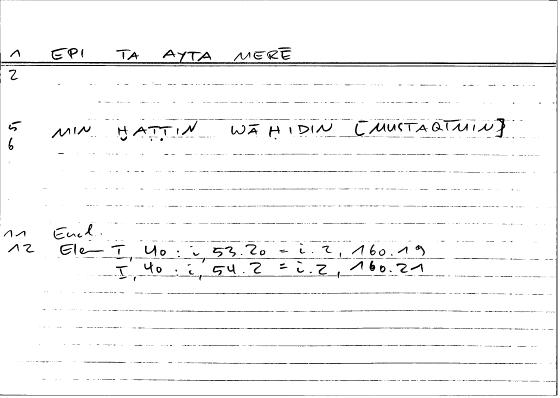 1 EPI TA AYTA MERĒ
2
5 MIN ḤAṬṬIN WĀḤIDIN [MUSTAQĪMIN]
6
11 Eucl.
12 Elem I, 40 : i, 53.20 = i.2, 160.19
I, 40 : i, 54.2 = i.2, 160.21